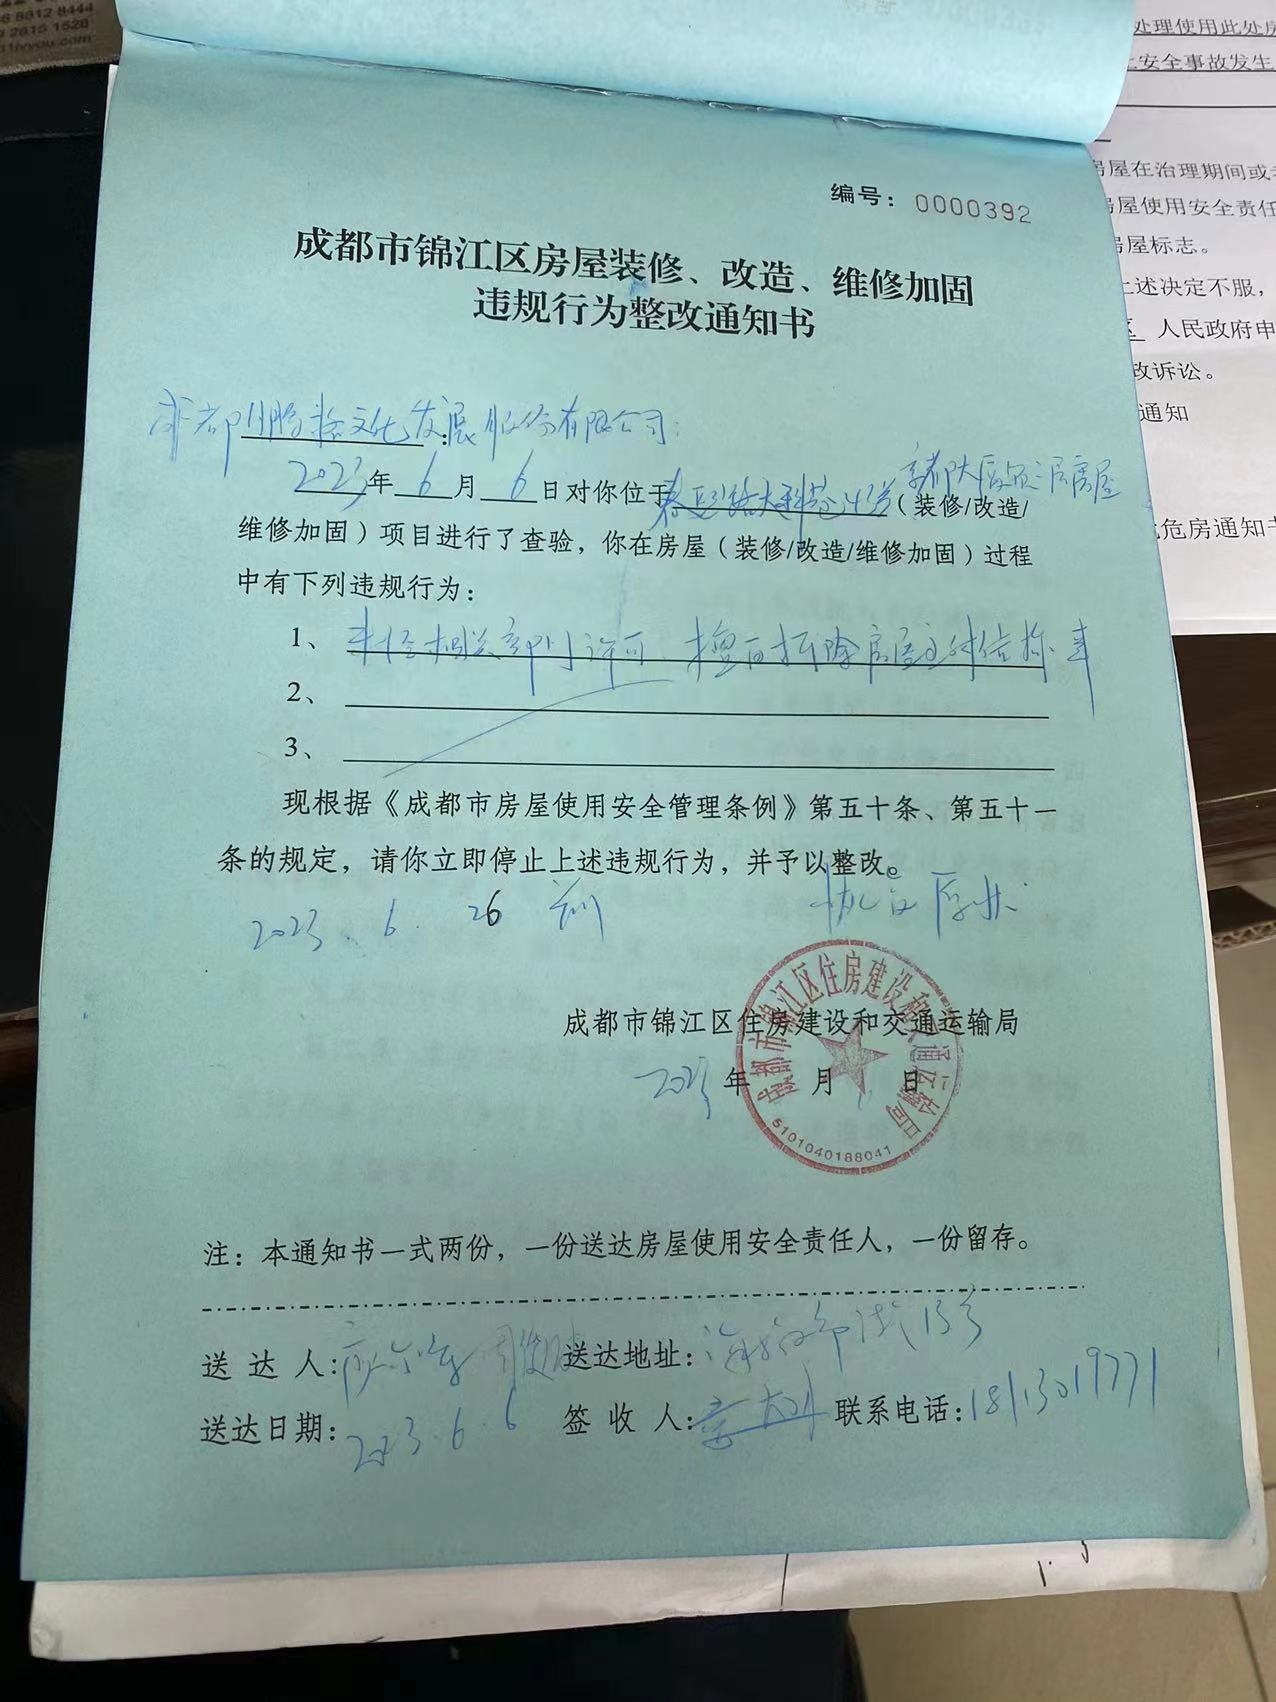 6 8612 8444
9 2615 1528
处理使用此处房
上安全事故发生
房屋在治理期间或
房屋使用安全责任
房屋标志。
上述决定不服，
区 人民政府申
政诉讼。
通知
危房通知书
编号：0000392
成都市锦江区房屋装修、改造、维修加固
违规行为整改通知书
成都 文化发展股份有限公司：
2023年6月6日对你位于 （装修/改造/
维修加固）项目进行了查验，你在房屋（装修/改造/维修加固）过程
中有下列违规行为：
1、未经相关部门许可，擅自拆除房屋主体结构。
2、
3、
现根据《成都市房屋使用安全管理条例》第五十条、第五十一
条的规定，请你立即停止上述违规行为，并予以整改。
2023.6.26 前 恢复原状
成都市锦江区住房建设和交通运输局
2023年 月 日
成都市锦江区住房建设和交通运输局
5101040188041
注：本通知书一式两份，一份送达房屋使用安全责任人，一份留存。
送 达 人： 送达地址： 15号
送达日期：2023.6.6 签 收 人： 联系电话：18113019771